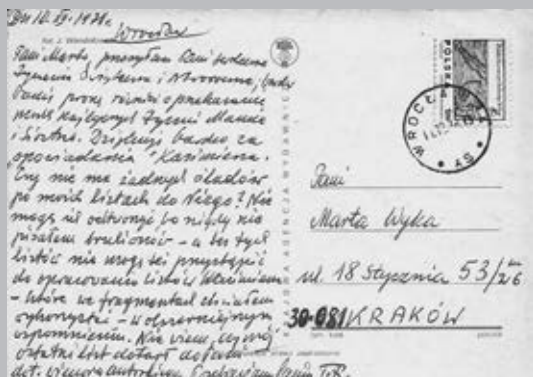 Wrocław
Pani Marto, przesyłam Pani serdeczne
życzenia Świąteczne i Noworoczne, bardzo
Panią proszę również o przekazanie
moich najlepszych życzeń Mamie
i Siostrze. Dziękuję bardzo za
„opowiadania” Kazimierza.
Czy nie ma żadnych śladów
po moich listach do Niego? Nie
mogę ich odtworzyć bo nigdy nie
pisałem brulionów – a bez tych
listów nie mogę też przystąpić
do opracowania listów Kazimierza
– które we fragmentach chciałem
wykorzystać – w obszerniejszym
wspomnieniu. Nie wiem, czy mój
ostatni list dotarł
POLSKA
WROCŁAW
Pani
Marta Wyka
ul. 18 Stycznia 53/26
30-081 KRAKÓW